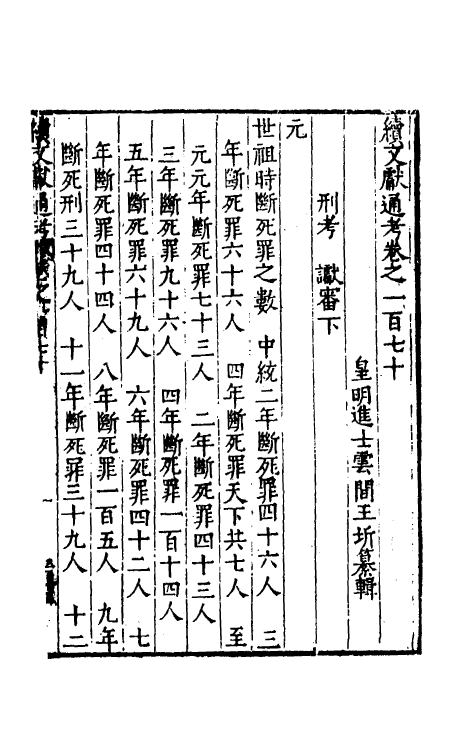 續文獻通考卷之一百七十
皇明進士雲間王圻纂輯
刑考　讞審下
元
世祖時斷死罪之數　中統二年斷死罪四十六人　三
年斷死罪六十六人　四年斷死罪天下共七人　至
元元年斷死罪七十三人　二年斷死罪四十三人
三年斷死罪九十六人　四年斷死罪一百十四人
五年斷死罪六十九人　六年斷死罪四十二人　七
年斷死罪四十四人　八年斷死罪一百五人　九年
斷死刑三十九人　十一年斷死罪三十九人　十二
續文獻通考